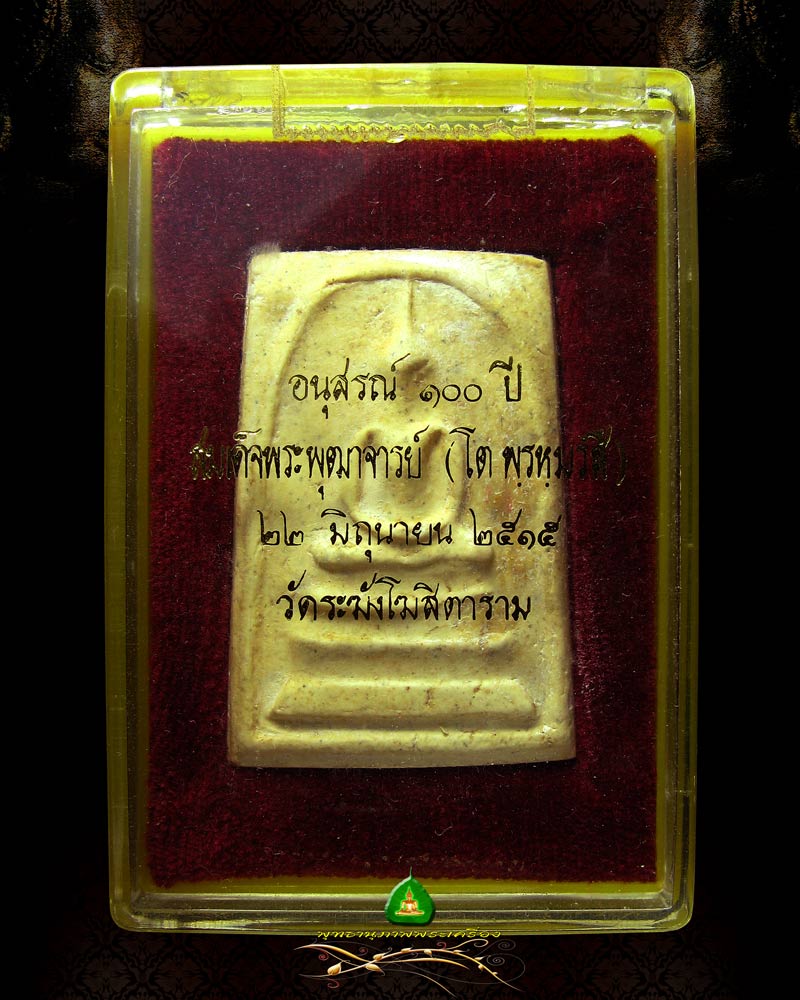 อนุสรณ์ ๑๐๐ ปี
สมเด็จพระพุฒาจารย์ (โต พฺรหฺมรํสี)
๒๒ มิถุนายน ๒๕๑๕
วัดระฆังโฆสิตาราม
พุทธานุภาพพระเครื่อง